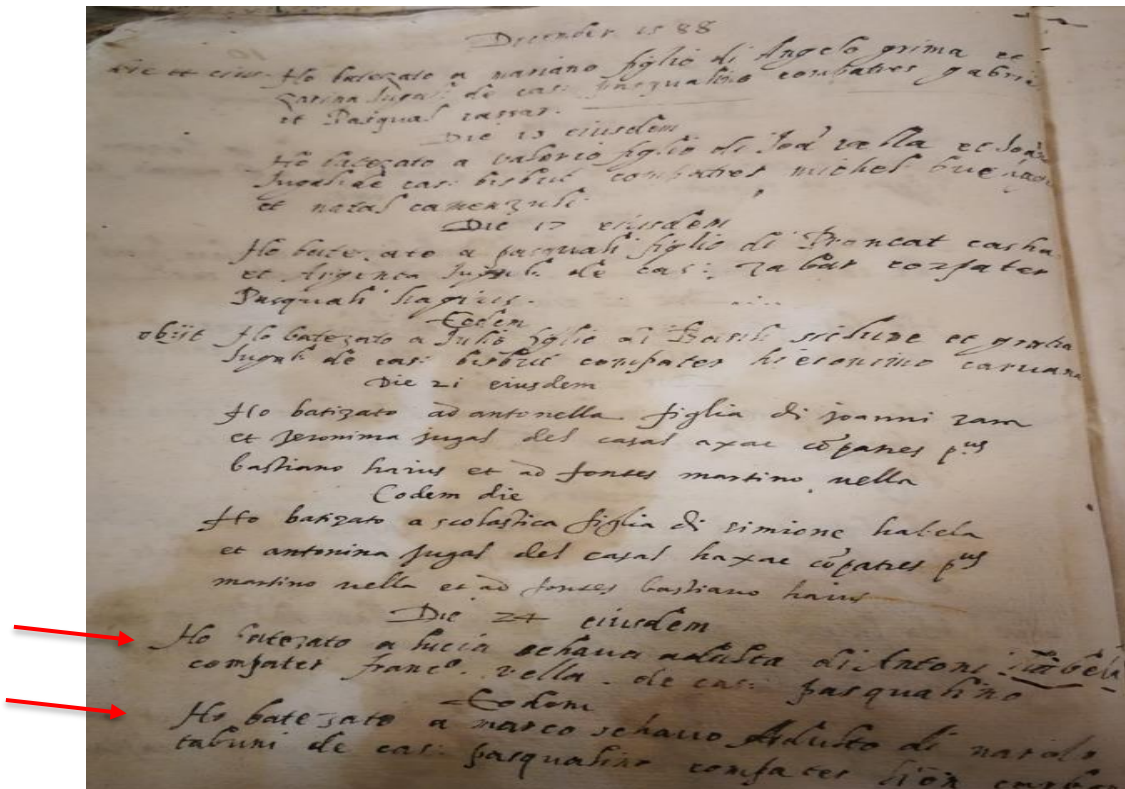 December 1588
Ho batezato a mariano figlio di Angelo grima et
Jugali de cas: pasqualino compatres gabri
et Pasqual
Die 13 eiusdem
Ho batezato a valerio figlio di Joa vella et Joa
Jugali de cas: bisbut compatres michel
et natal camenzuli
Die 17 eiusdem
Ho batezato a pasquali figlio di Broncat casha
et Argenta Jugali de cas: zabar compater
Pasquali hagius.
Eodem
obijt Ho batezato a Julio figlio di Basili et gratia
Jugali de cas: bisbut compater hieronimo caruana
Die 21 eiusdem
Ho batizato ad antonella figlia di joanni zara
et jeronima jugal del casal axac cõpatres pus
bastiano haius et ad fontes martino vella
Eodem die
Ho batizato a scolastica figlia di simione habela
et antonina jugal del casal haxac cõpatres pus
martino vella et ad fontes bastiano haius
Die 24 eiusdem
Ho batezato a lucia schava adulta di Antoni
compater franco. vella. de cas: pasqualino
Eodem
Ho batezato a marco schavo Adulto di
tabuni de cas: pasqualino compater